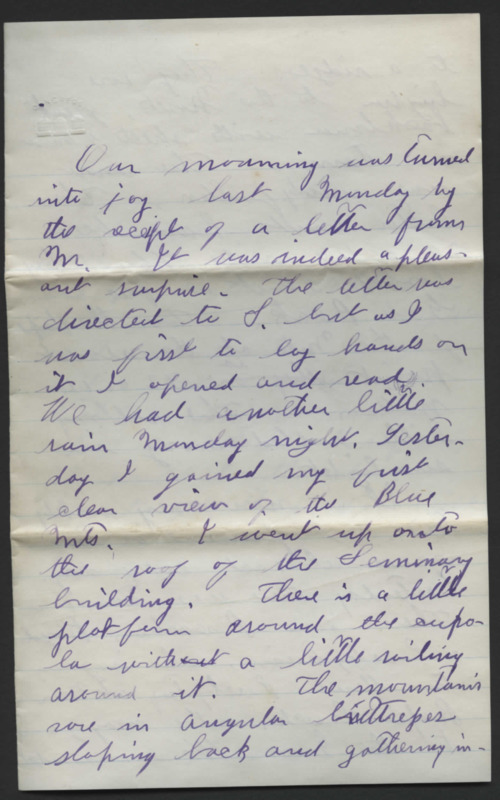 Our mourning was turned
into joy last Monday by
the reciept of a letter from
M. It was indeed a pleas-
ant surprise. The letter was
directed to S. but as I
was first to lay hands on
it I opened and read.
We had another little
rain Monday night. Yester-
day I gained my first
clear view of the Blue
Mts. I went up onto
the roof of the Seminary
building. There is a little
platform around the cupo-
la with a little railing
around it. The mountains
rose in angular buttresses
sloping back and gathering in-